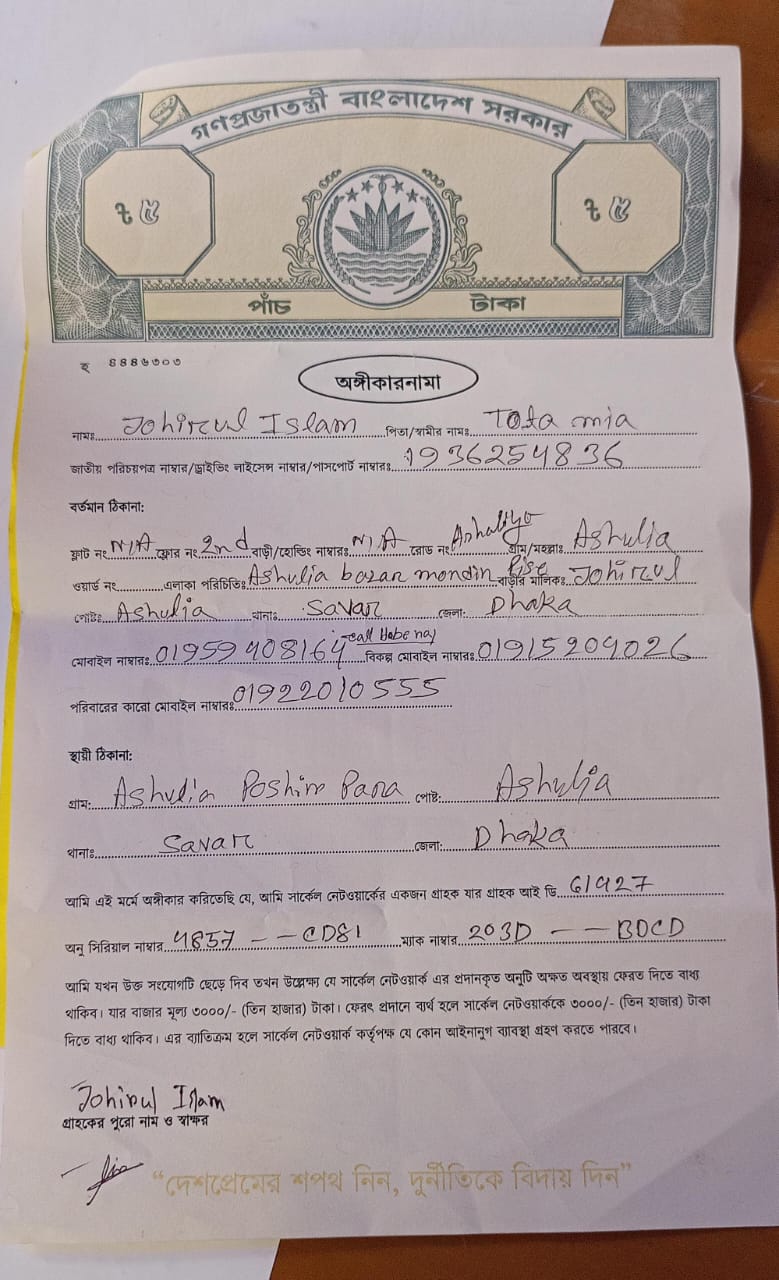 গণপ্রজাতন্ত্রী বাংলাদেশ সরকার
৳ ৫ ৳ ৫
পাঁচ টাকা
হ ৪৪৪৬৩০৩
অঙ্গীকারনামা
নামঃ Johirul Islam পিতা/স্বামীর নামঃ Tota mia
জাতীয় পরিচয়পত্র নাম্বার/ড্রাইভিং লাইসেন্স নাম্বার/পাসপোর্ট নাম্বারঃ 1936254836
বর্তমান ঠিকানা:
ফ্লাট নং N/A ফ্লোর নং 2nd বাড়ী/হোল্ডিং নাম্বারঃ N/A রোড নং Ashaliya গ্রাম/মহল্লাঃ Ashulia
ওয়ার্ড নং এলাকা পরিচিতিঃ Ashulia bazar mondin বাড়ীর মালিকঃ Johirul
পোষ্টঃ Ashulia থানাঃ Savar জেলা: Dhaka
মোবাইল নাম্বারঃ 01959408164 call Hobe na বিকল্প মোবাইল নাম্বারঃ 01915209026
পরিবারের কারো মোবাইল নাম্বারঃ 01922010555
স্থায়ী ঠিকানা:
গ্রাম: Ashulia Poshim Para পোষ্ট: Ashulia
থানাঃ Savar জেলা: Dhaka
আমি এই মর্মে অঙ্গীকার করিতেছি যে, আমি সার্কেল নেটওয়ার্কের একজন গ্রাহক যার গ্রাহক আই ডি 61927
অনু সিরিয়াল নাম্বার 4857 -- CD81 ম্যাক নাম্বার 203D -- BDCD
আমি যখন উক্ত সংযোগটি ছেড়ে দিব তখন উল্লেক্ষ্য যে সার্কেল নেটওয়ার্ক এর প্রদানকৃত অনুটি অক্ষত অবস্থায় ফেরত দিতে বাধ্য
থাকিব। যার বাজার মূল্য ৩০০০/- (তিন হাজার) টাকা। ফেরৎ প্রদানে ব্যর্থ হলে সার্কেল নেটওয়ার্ককে ৩০০০/- (তিন হাজার) টাকা
দিতে বাধ্য থাকিব। এর ব্যাতিক্রম হলে সার্কেল নেটওয়ার্ক কর্তৃপক্ষ যে কোন আইনানুগ ব্যাবস্থা গ্রহণ করতে পারবে।
Johirul Islam
গ্রাহকের পুরো নাম ও স্বাক্ষর
“দেশপ্রেমের শপথ নিন, দুর্নীতিকে বিদায় দিন”